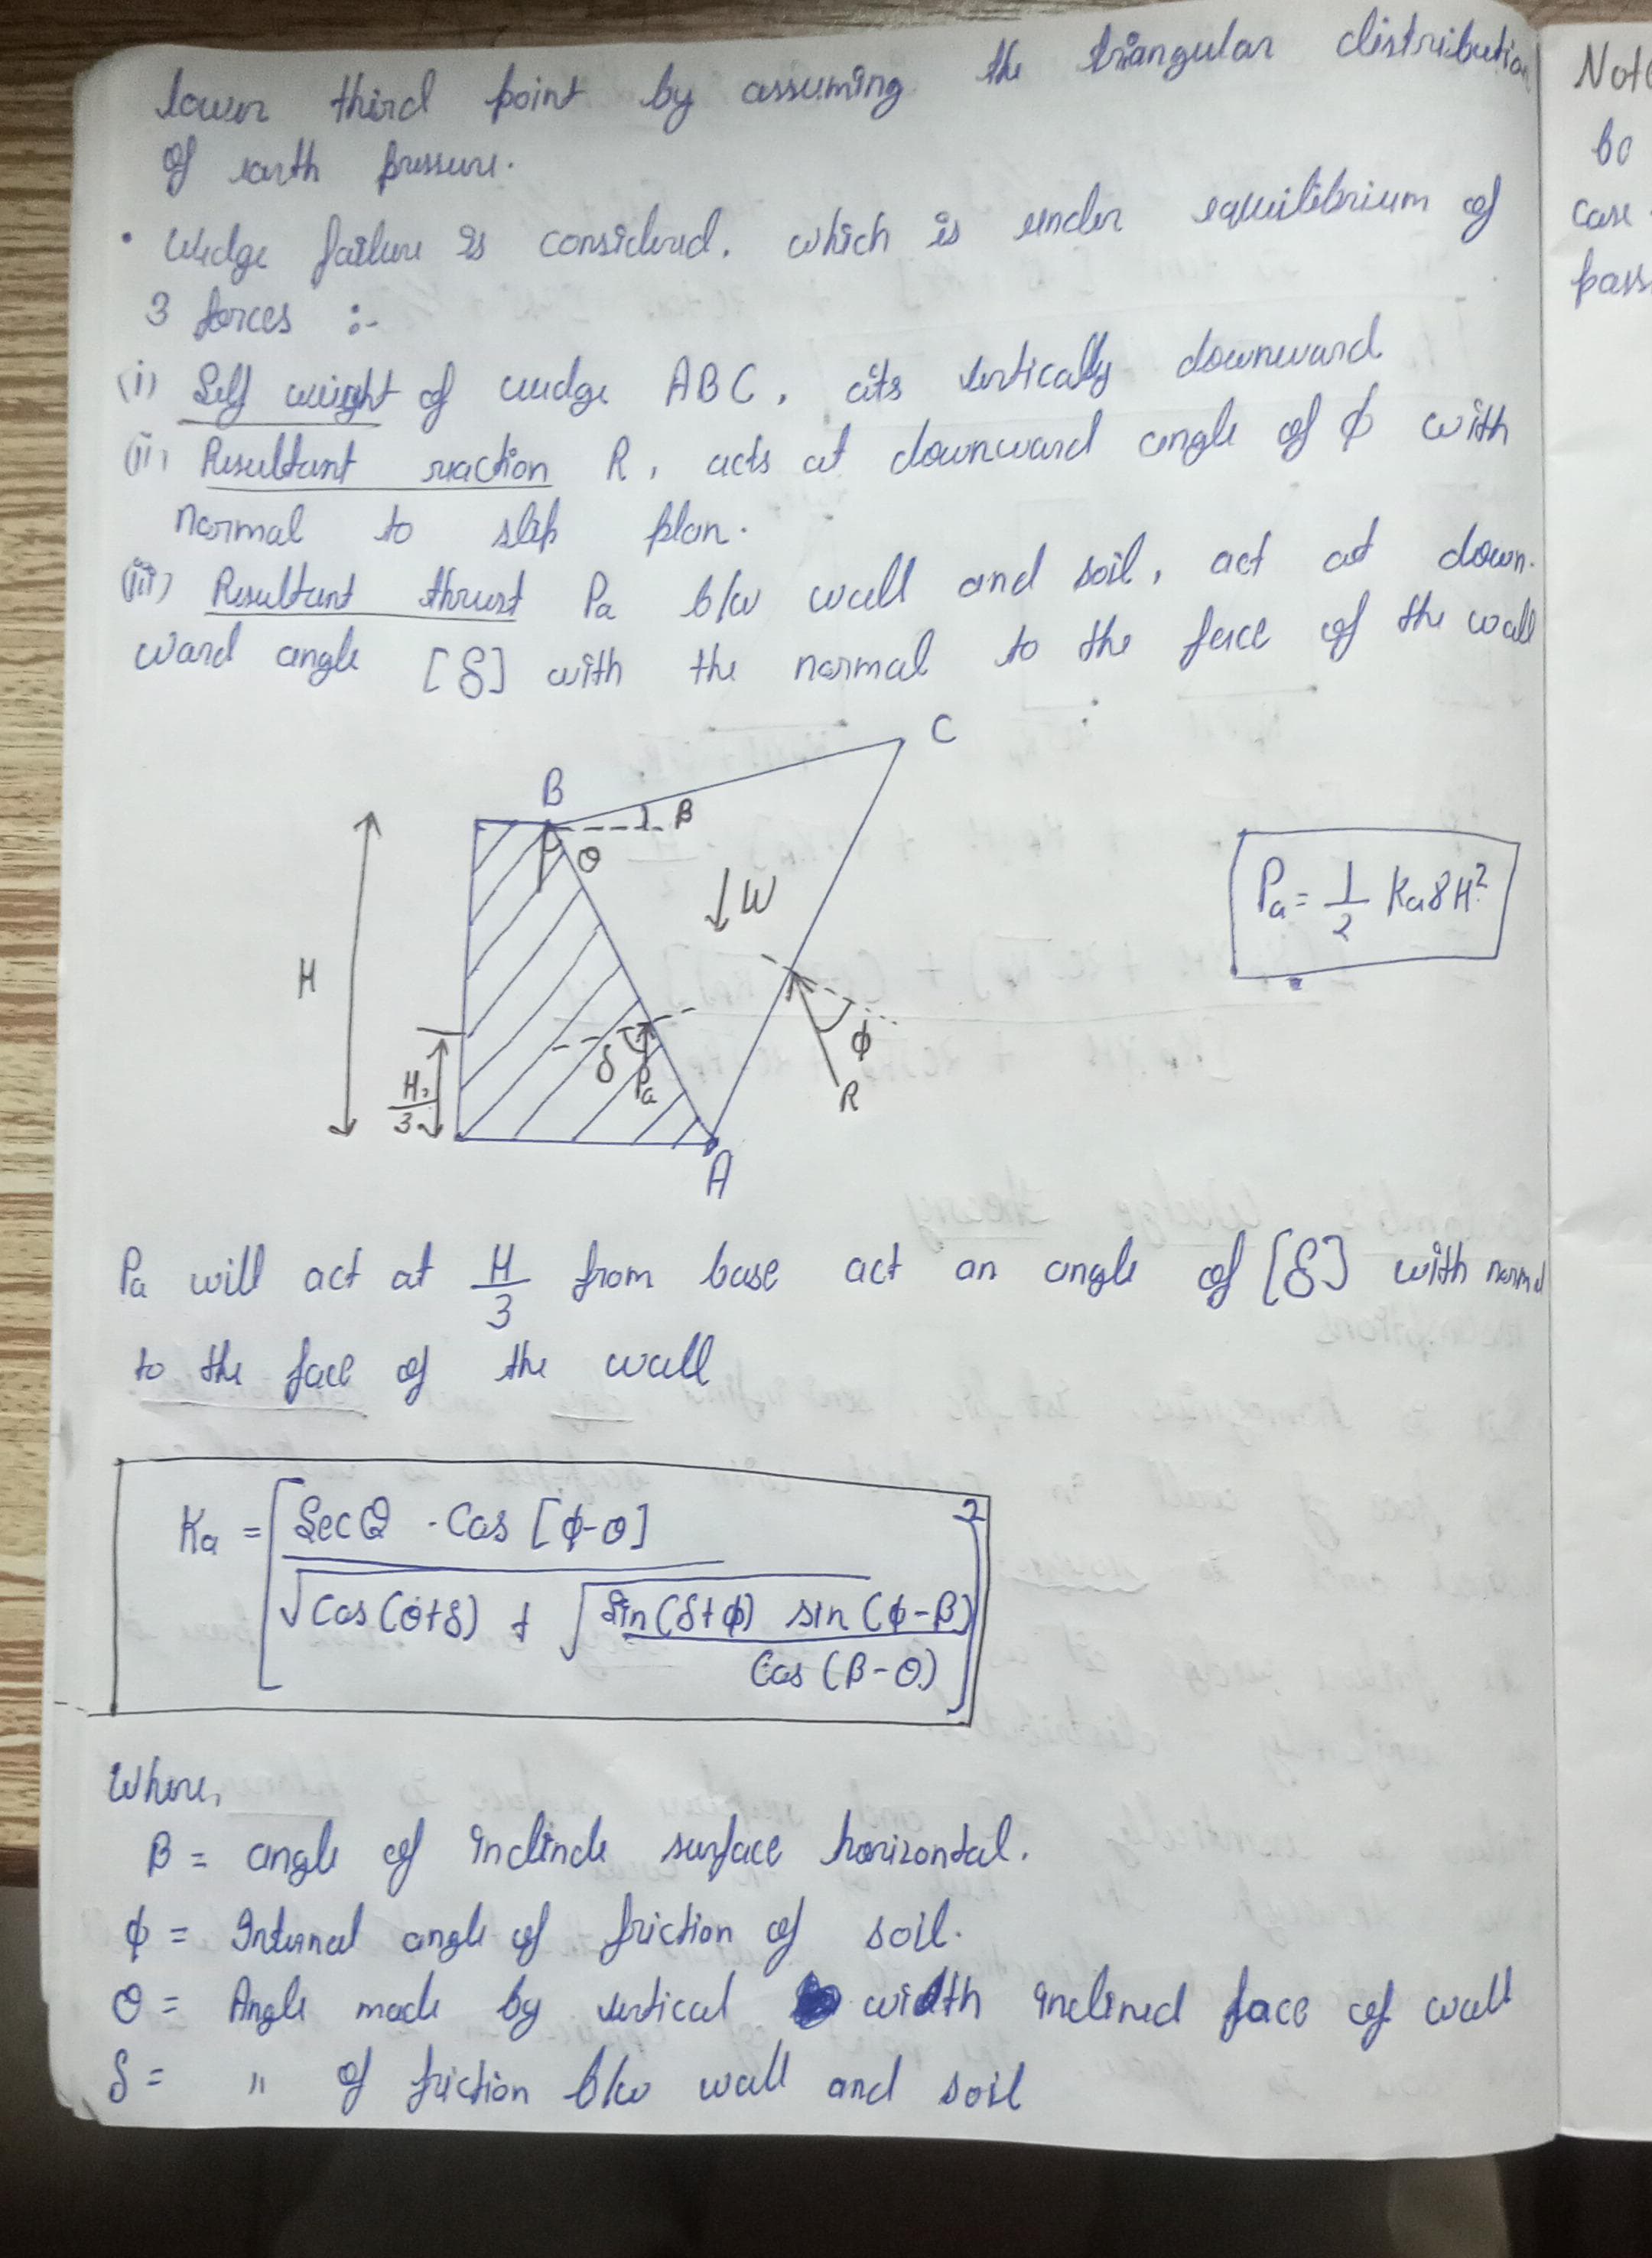 lower third point by assuming the triangular distribution
of earth pressure.
• Wedge failure is considered. which is under equilibrium of
3 forces :-
(i) Self weight of wedge ABC, cits vertically downward
(ii) Resultant reaction R, acts at downward angle of ϕ with
normal to slip plan.
(iii) Resultant thrust Pa b/w wall and soil, act at down-
ward angle [δ] with the normal to the face of the wall
C
B
β
θ
W
Pa = 1/2 Ka γ H²
H
δ
Pa
ϕ
R
H/3
A
Pa will act at H/3 from base act an angle of [δ] with normal
to the face of the wall
Ka = [ Secθ . Cos [ϕ-θ] / √Cos(θ+δ) + √Sin(δ+ϕ) sin(ϕ-β) / Cos(β-θ) ]²
Where,
β = angle of inclinde surface horizontal.
ϕ = Internal angle of friction of soil.
θ = Angle made by vertical width inclined face of wall
δ = " of friction b/w wall and soil
Note
be
case
pass